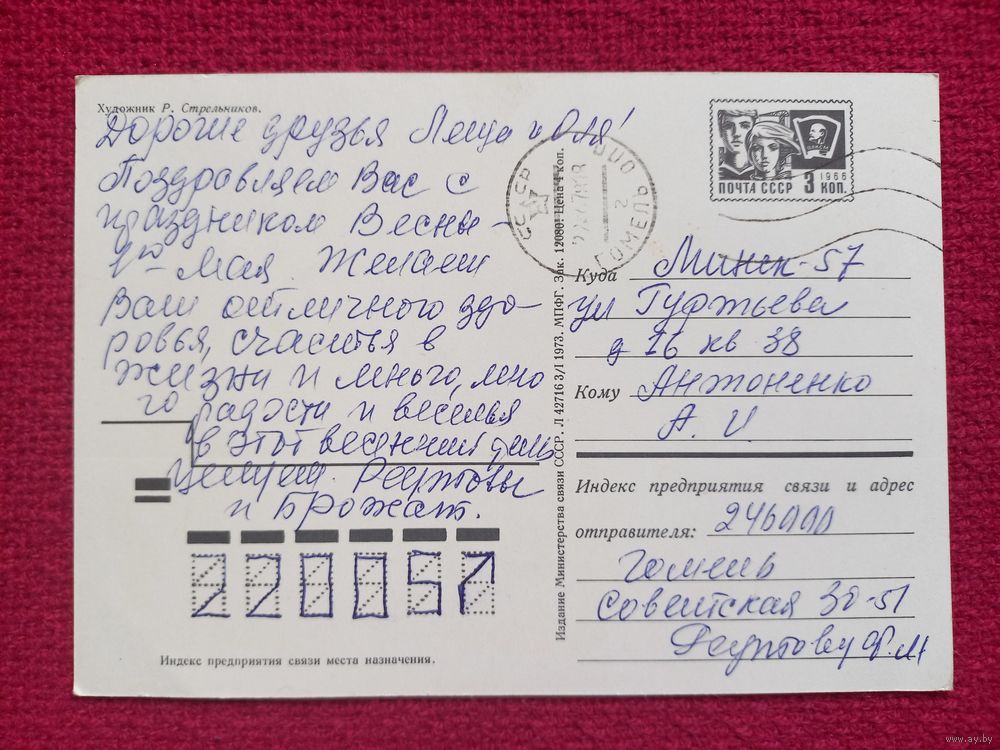 Художник Р. Стрельников.
Дорогие друзья Леща и Оля!
Поздравляем Вас с
праздником Весны –
1го – Мая. Желаем
Вам отличного здо-
ровья, счастья в
жизни и много, мно
го радости и веселья
в этот весенний день
Целуем. Реутовы
и Брожат.
220057
Индекс предприятия связи места назначения.
Издание Министерства связи СССР. Л 42716 3/I 1973. МПФГ. Зак. 12080. Цена 4 коп.
СССР
ГОМЕЛЬ 2
ВЛКСМ
1966
ПОЧТА СССР 3 КОП.
Куда Минск-57
ул Гуртьева
д 16 кв 38
Кому Антоненко
А. И.
Индекс предприятия связи и адрес
отправителя: 246000
Гомель
Советская 30-51
Реутову Ф. М
www.ay.by